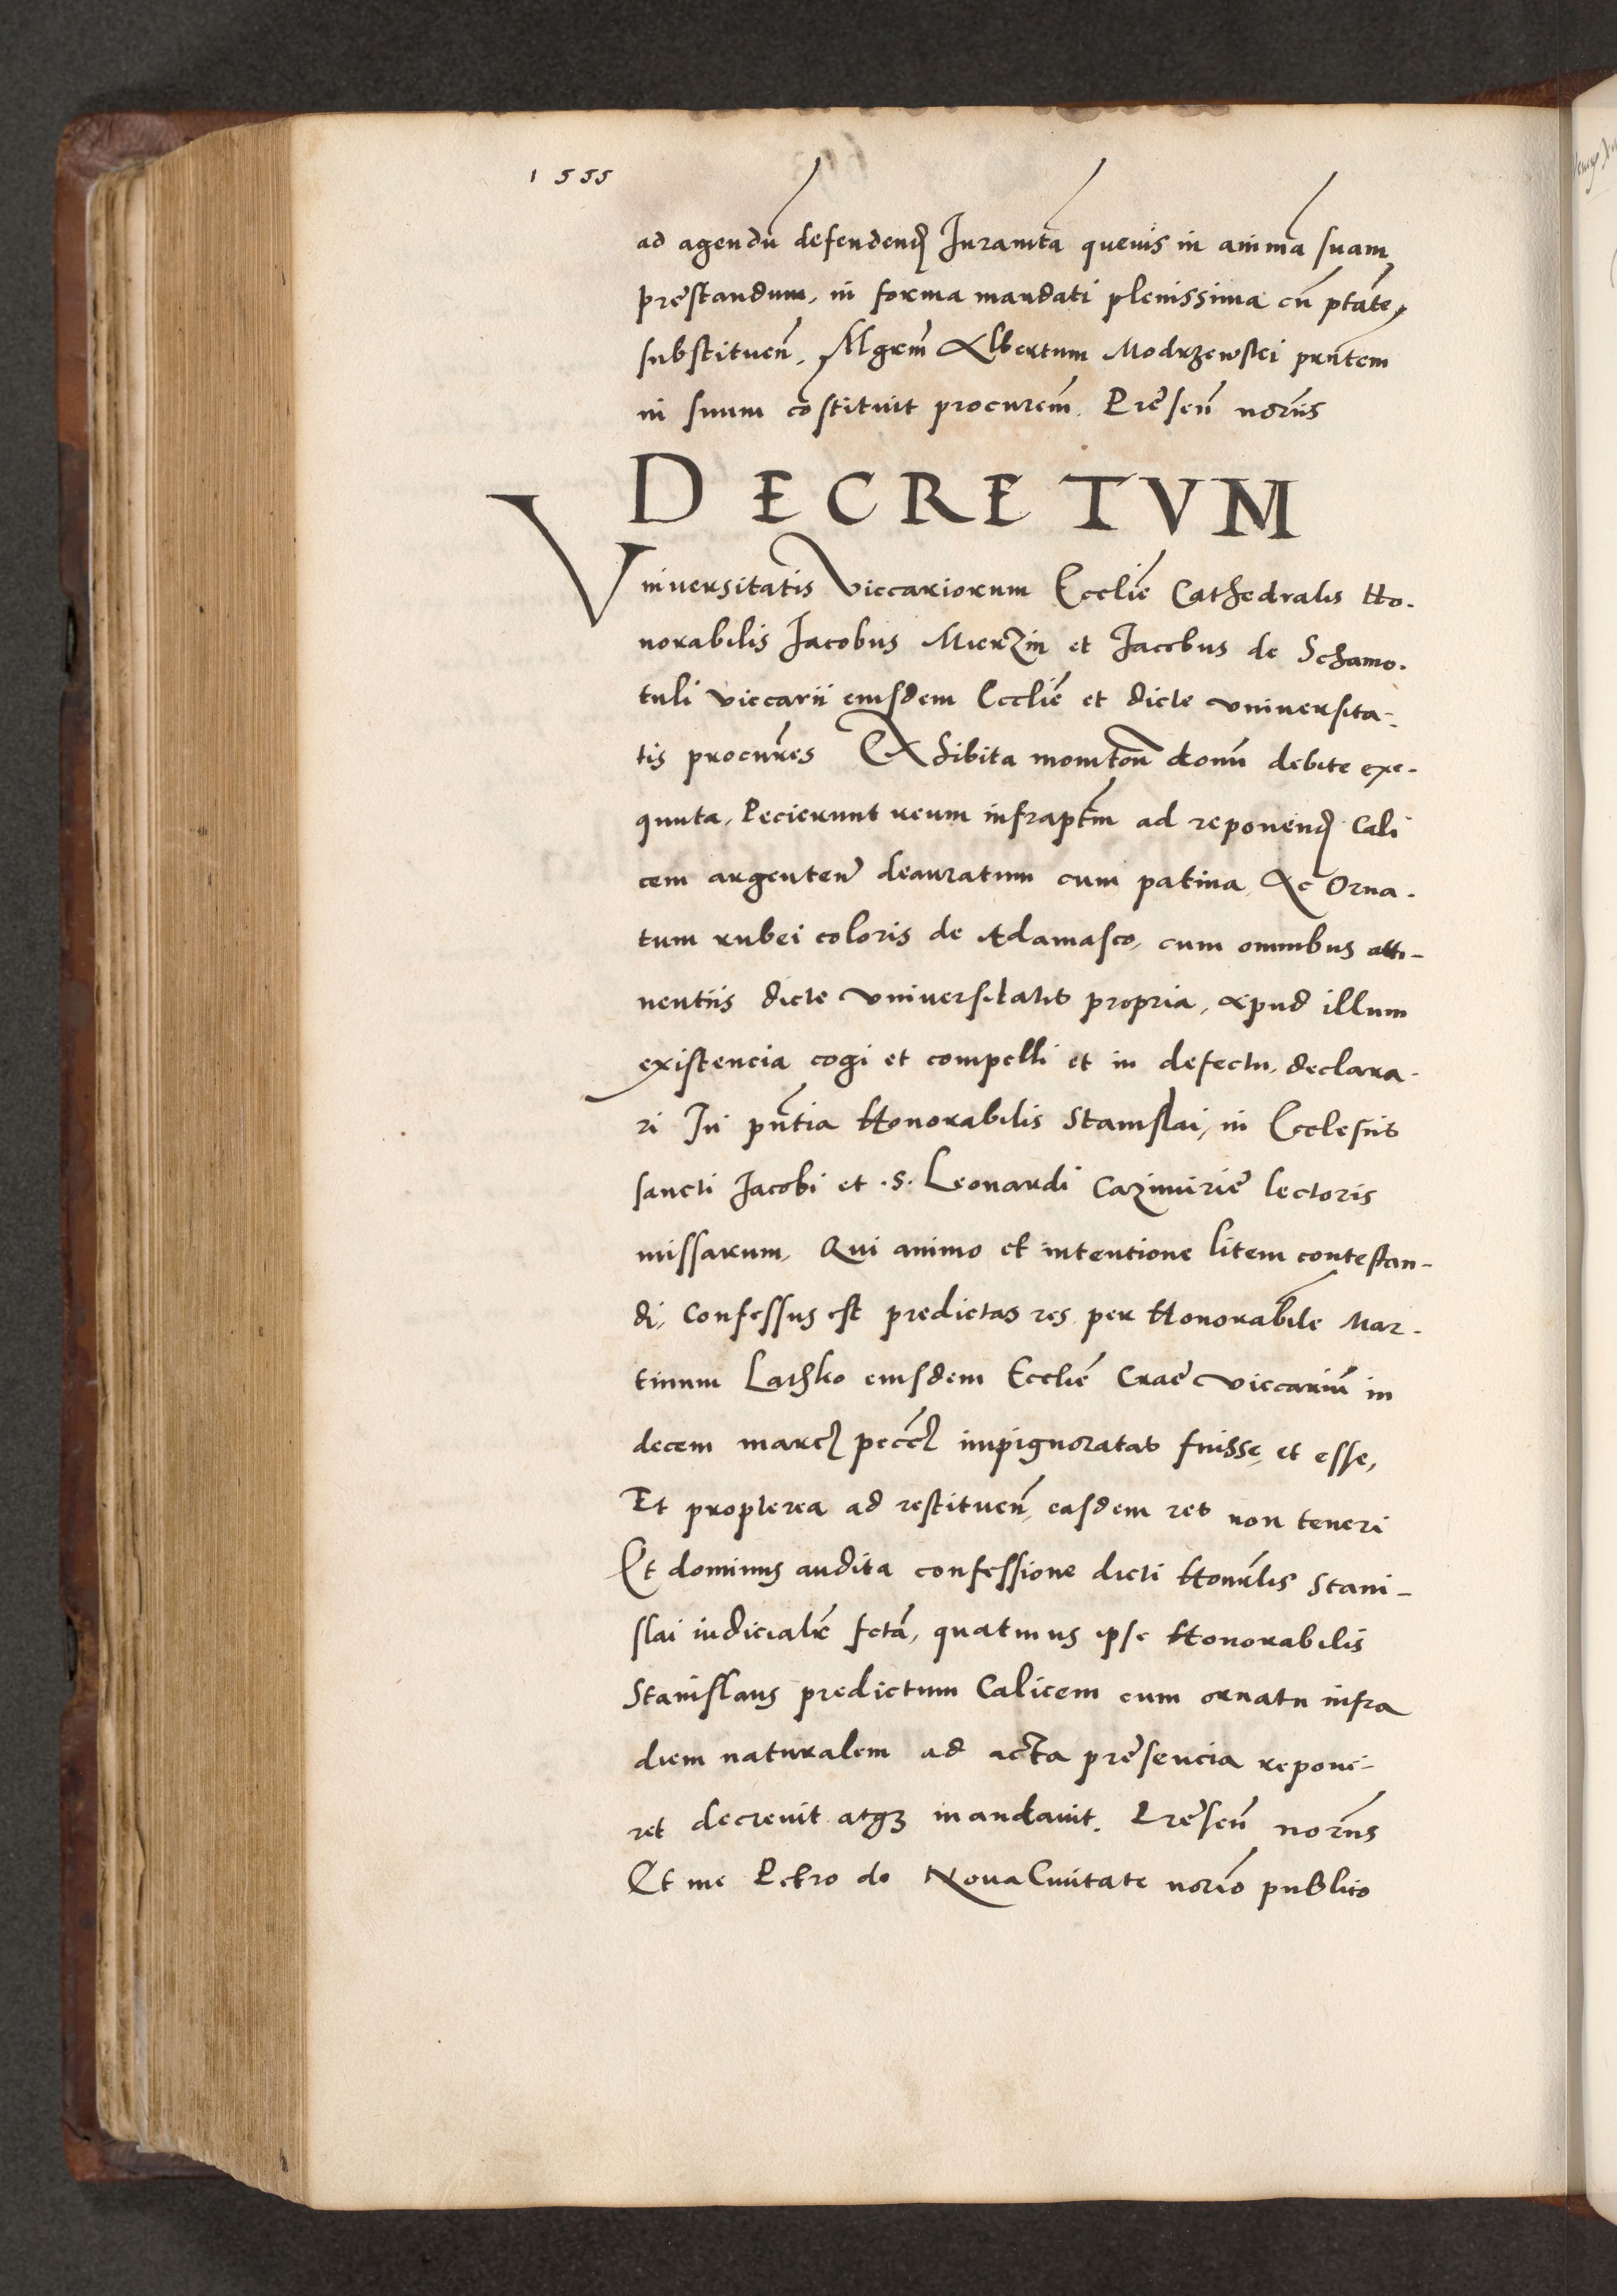 1555
ad agendū defendend Iuramta quevis in animā suam
prestandum, in forma mandati plenissima cū ptāte
substituen̄, Mgrm̄ Albertum Modrzewski prn̄tem
in suum cōstituit procurem̄. Presen̄ norīis
DECRETVM
Vniversitatis Viccariorum Ecclīe Cathedralis Ho-
norabilis Jacobus Mierzin et Jacobus de Schamo-
tuli viccarii eiusdem Ecclīe et dicte universita-
tis procurēs Exhibita monitōn domī debite exe-
quuta, Pecierunt reum infraptm̄ ad reponend Cali
cem argenteū deauratum cum patina, Ac Orna-
tum rubei coloris de Adamasco, cum omnibus atti-
nentiis dicte universitatis propria, apud illum
existencia cogi et compelli et in defectu, declara-
ri In pn̄tia Honorabilis Stanislai, in Ecclesiis
sancti Jacobi et .S. Leonardi Cazimirie lectoris
missarum, Qui animo et intentione litem contestan-
di, Confessus est predictas res per Honorabilē Mar-
tinum Lathko eiusdem Ecclīe Crac viccariū in
decem marc pecc impignoratas fuisse, et esse,
Et propterea ad restituen̄, easdem res non teneri
Et dominus audita confessione dicti Honrlis Stani-
slai iudicialr fctā, quatinus ipse Honorabilis
Stanislaus predictum Calicem cum ornatu infra
diem naturalem ad acta presencia repone-
ret decrevit atq3 mandavit. Presen̄ norīis
Et me Petro de Nova Civitate norīo publico